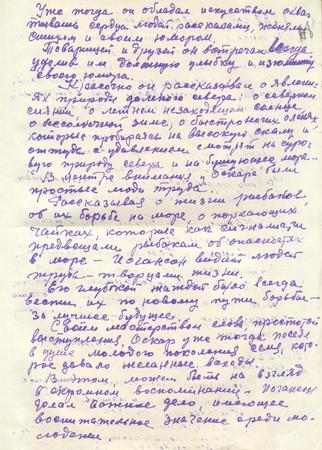 Уже тогда он обладал искусством охва-
тывать сердца людей рассказами,
стихом и своим юмором.
Товарищей и друзей он встречал всегда
уделив им большую улыбку и
своего юмора.
Красочно он рассказывал о явлени-
ях природы далекого севера, о северном
сиянии, о летнем незаходящем солнце
о бессолнечной зиме, о быстроногих оленях
которые пробираясь на высокую скалу и
оттуда с удивлением смотрят на суро-
вую природу севера и на бушующее море...
В центре внимания у Оскара были
простые люди труда.
Рассказывая о жизни рыбаков
об их борьбе на море, о порхающих
чайках, которые как сигналами
предвещали рыбакам об опасностях
в море — Иогансон видел людей
труда — творцами жизни.
Его глубокой жаждой было всегда
вести их по новому пути борьбы —
за лучшее будущее.
Своим мастерством слова, простотой
выступления, Оскар уже тогда посеял
в душе молодого поколения семя, кото-
рое давало желанные всходы.
В этом, может быть на взгляд
и скромном воспоминании — Иогансон
делал важное дело, имеющее
воспитательное значение среди мо-
лодежи.